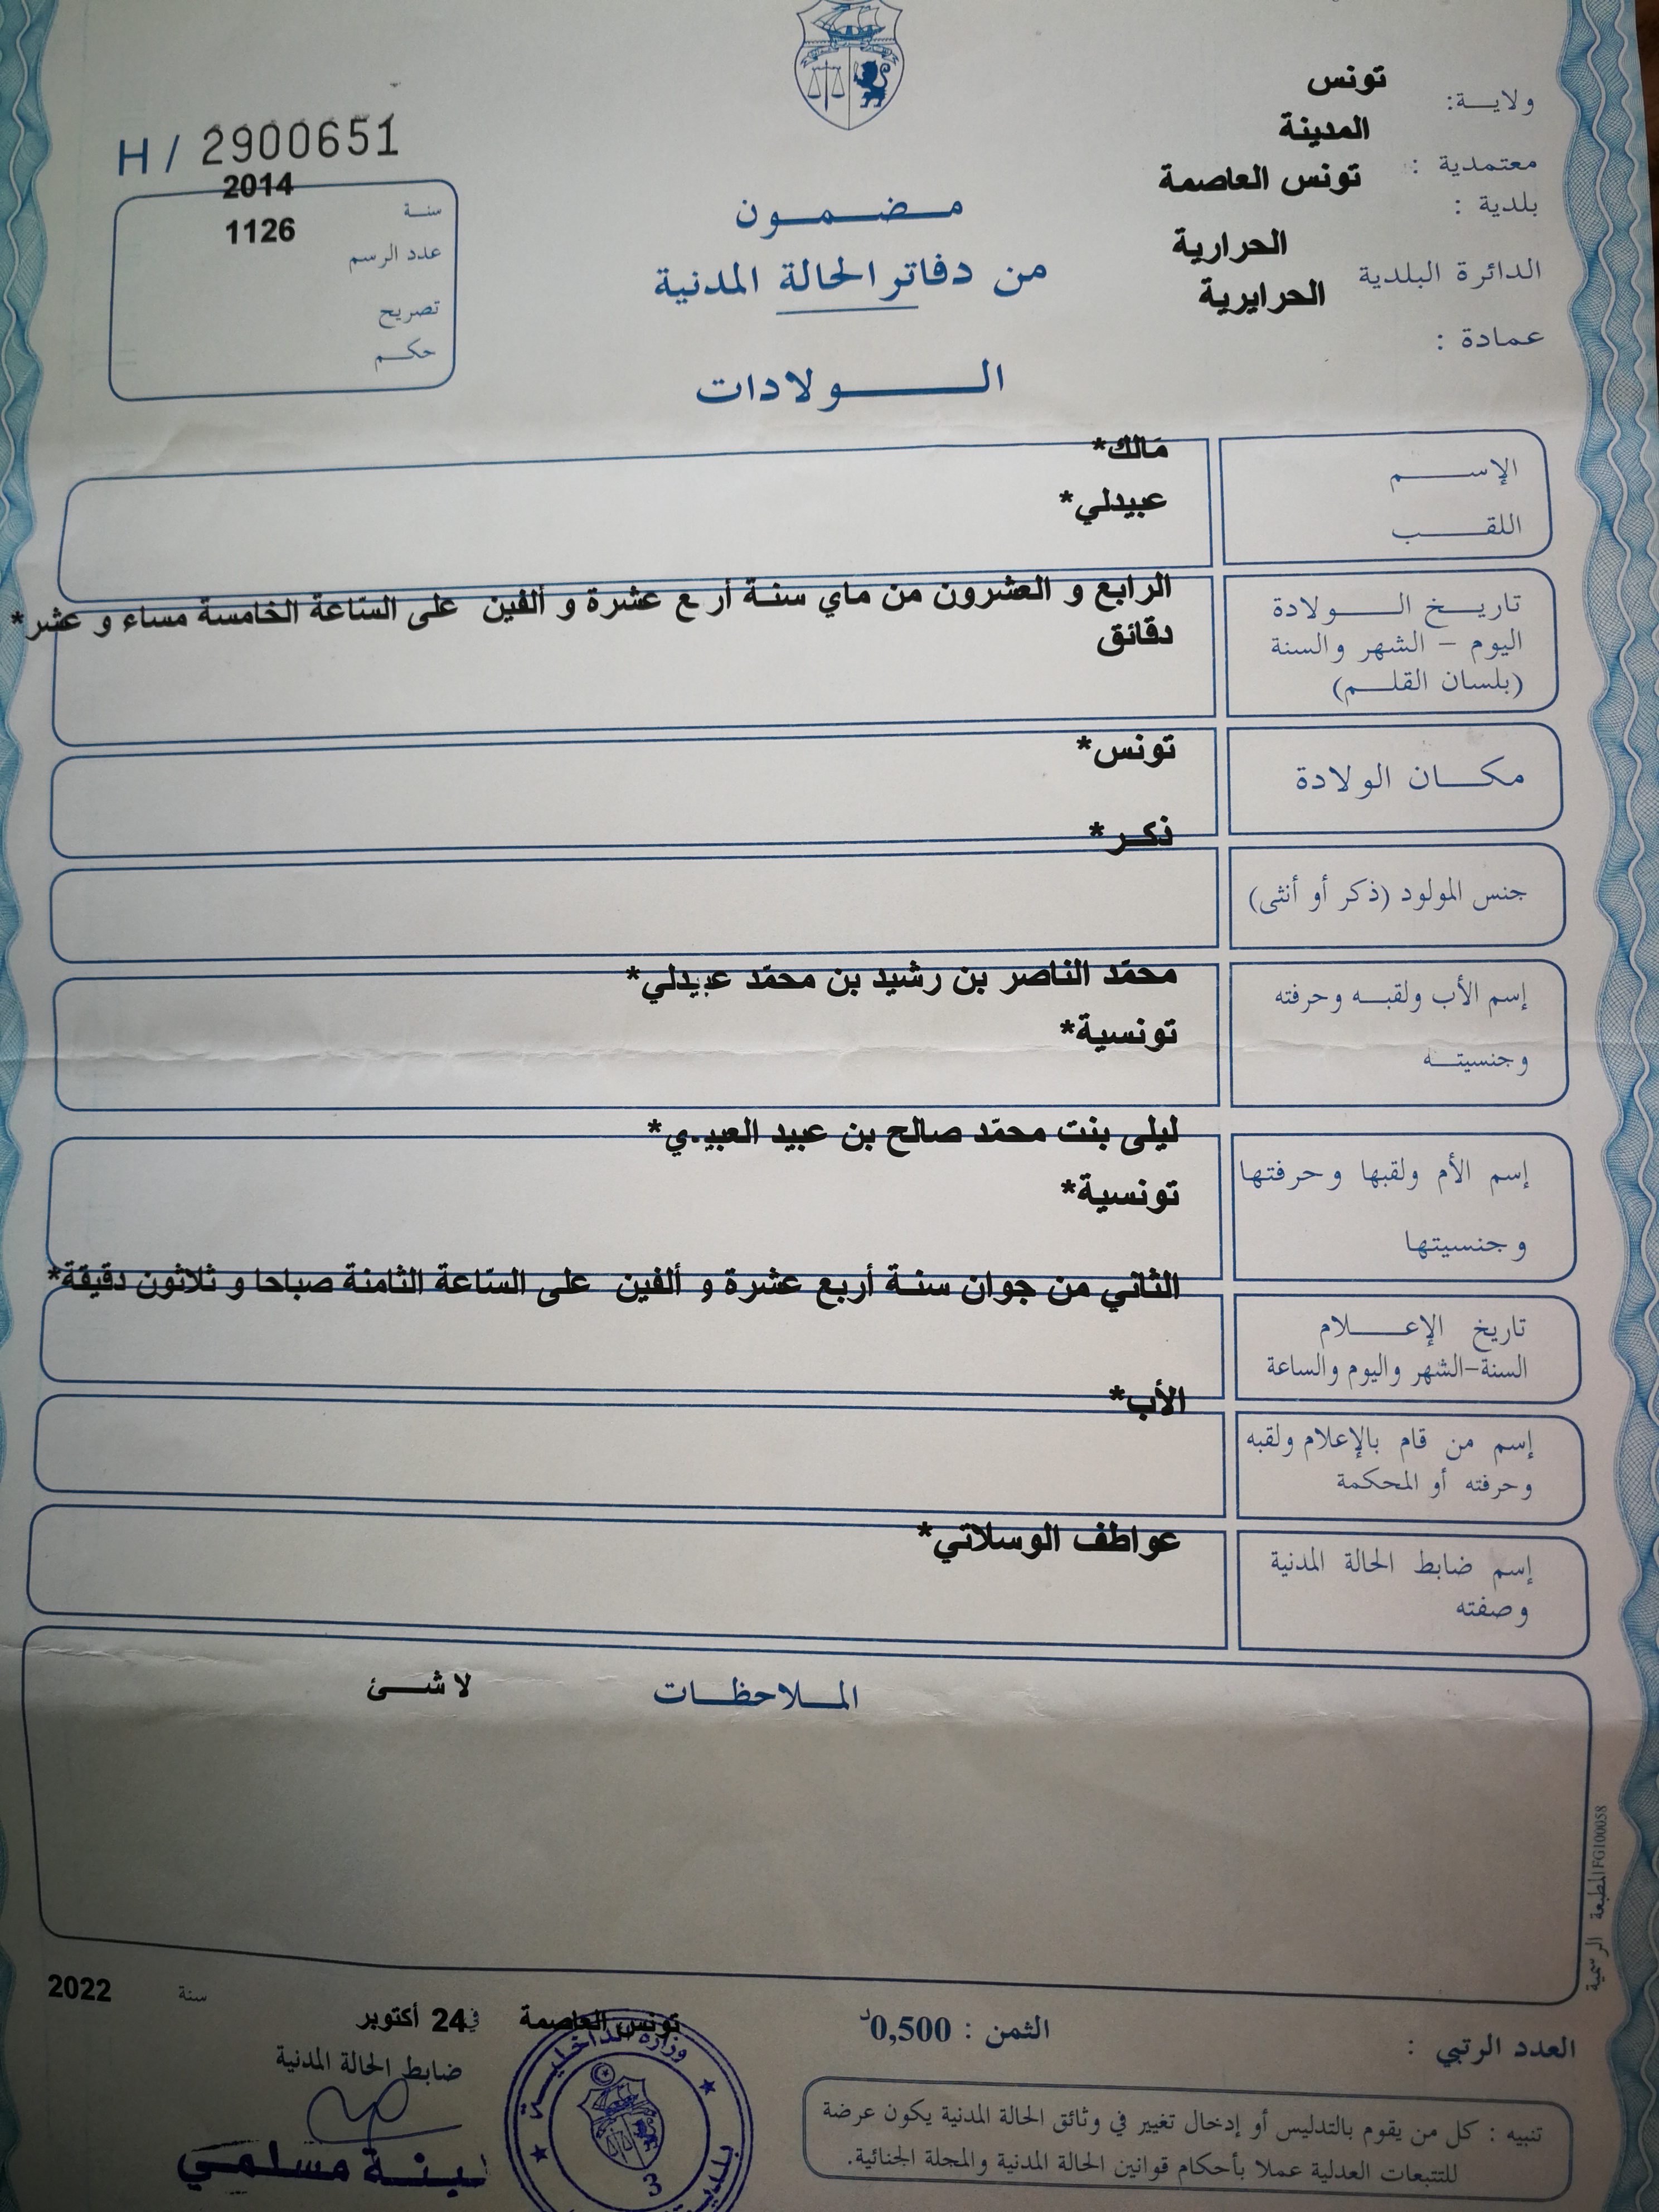 ولاية: تونس
معتمدية : المدينة
بلدية : تونس العاصمة
الدائرة البلدية الحرارية
عمادة : الحرايرية
H / 2900651
سنة 2014
عدد الرسم 1126
تصريح
حكم
مضمون
من دفاتر الحالة المدنية
الولادات
الإسم مَالك*
اللقب عبيدلي*
تاريخ الولادة
اليوم - الشهر والسنة
(بلسان القلم)
الرابع و العشرون من ماي سنة أربع عشرة و ألفين على السّاعة الخامسة مساء و عشر*
دقائق
مكان الولادة تونس*
جنس المولود (ذكر أو أنثى) ذكر*
إسم الأب ولقبه وحرفته محمّد الناصر بن رشيد بن محمّد عبيدلي*
وجنسيته تونسية*
إسم الأم ولقبها وحرفتها ليلى بنت محمّد صالح بن عبيد
وجنسيتها تونسية*
تاريخ الإعلام
السنة-الشهر واليوم والساعة
الثاني من جوان سنة أربع عشرة و ألفين على السّاعة الثامنة صباحا و ثلاثون دقيقة*
إسم من قام بالإعلام ولقبه
وحرفته أو المحكمة
الأب*
إسم ضابط الحالة المدنية
وصفته
عواطف الوسلاتي*
الملاحظات لا شئ
المطبعة الرسمية FG100058
تونس العاصمة في 24 أكتوبر سنة 2022
ضابط الحالة المدنية
لبنة مسلمي
وزارة الداخلية
بلدية
3
الثمن : 0,500د
العدد الرتبي :
تنبيه : كل من يقوم بالتدليس أو إدخال تغيير في وثائق الحالة المدنية يكون عرضة
للتتبعات العدلية عملا بأحكام قوانين الحالة المدنية والمجلة الجنائية.